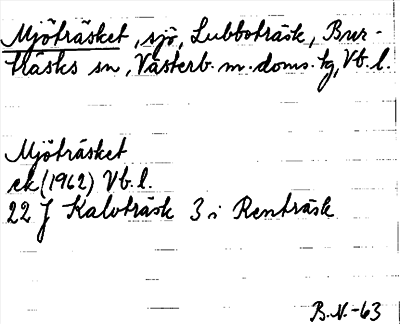 Mjöträsket, sjö, Lubboträsk, Bur-
träsks sn, Västerb. m. doms. tg, Vb. l.
Mjöträsket
ek (1962) Vb. l.
22 J Kalvträsk 3 i Renträsk
B.N.-63